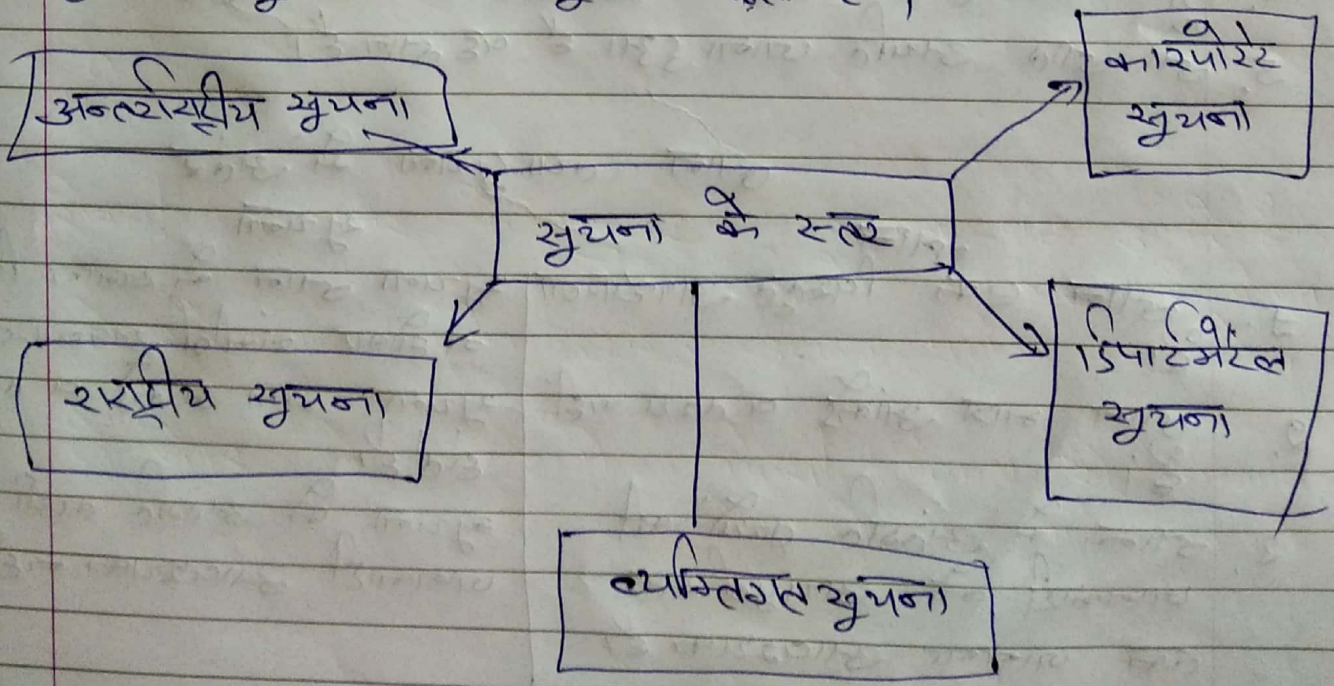 अन्तर्राष्ट्रीय सूचना
कॉरपोरेट
सूचना
सूचना के स्तर
राष्ट्रीय सूचना
डिपार्टमेंटल
सूचना
व्यक्तिगत सूचना